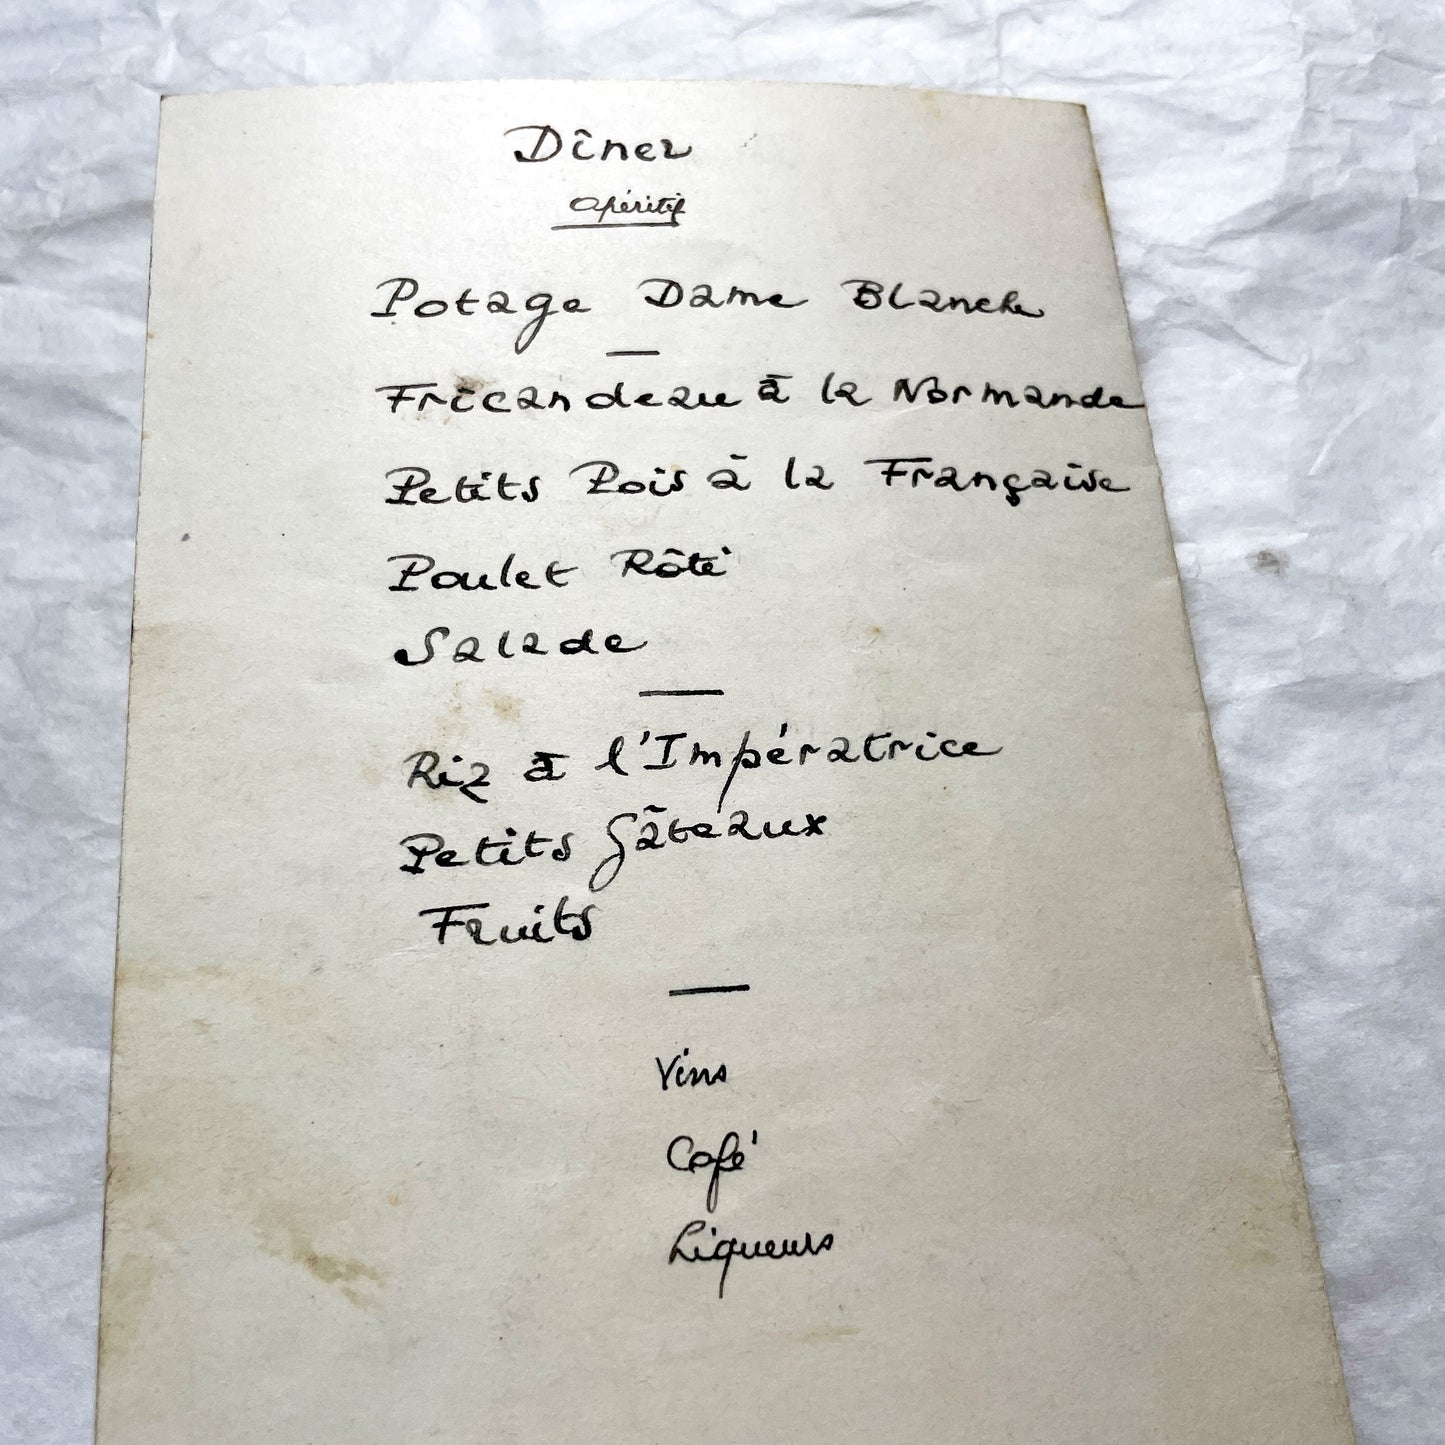 Dîner
apéritif
Potage Dame Blanche
Fricandeau à la Normande
Petits Pois à la Française
Poulet Rôti
Salade
Riz à l'Impératrice
Petits Gâteaux
Fruits
Vins
Café
Liqueurs